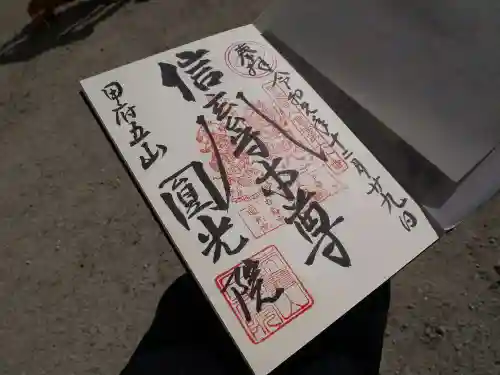 奉拝
令和元年十二月廿九日
信玄守本尊
甲府五山
圓光院